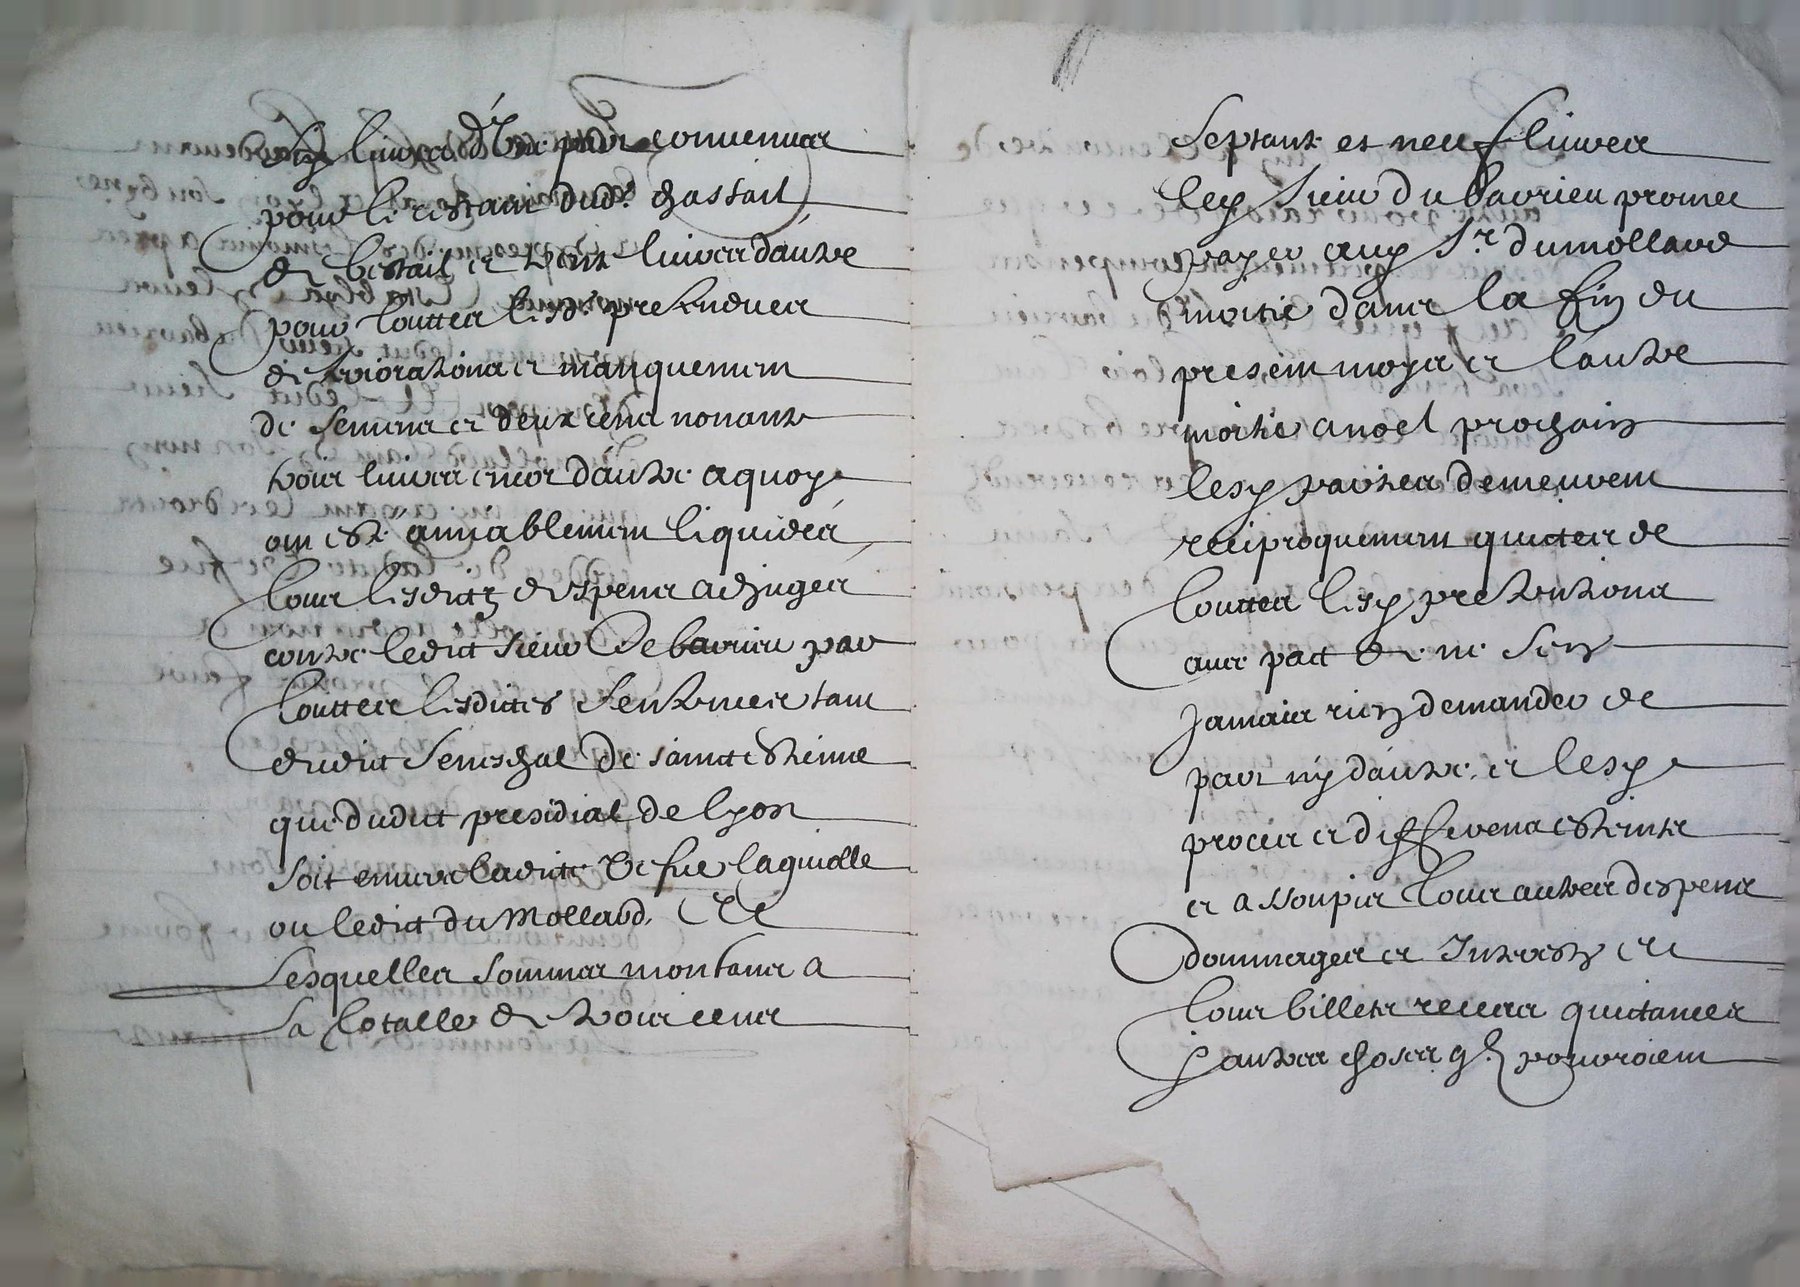 six livres d'une part convenues
pour le restant dud. chastail
de bestail et trente livres d'autre
pour touttes lesd. pretendues
deteriorations et manquement
de semens et deux cens nonante
trois livres encor d'autre a quoy
ont esté amiablement liquidés
tous lesdictz despens adjugés
contre ledict sieur Debavrieu par
touttes lesdictes sentences tant
dudict seneschal de sainct estienne
que dudict presidial de lyon
soit envers ladicte de fue laquielle
ou ledict du Mollard, et
lesquelles sommes montans a
la totalle de trois cens
Septante et neuf livres
ley sieur du bavrieu promet
payer auy Sr. dumollard
moitié dans la fin du
present moys et l'autre
moitié a noel prochain
lesy parties demeurent
reciproquement quictes de
touttes lesy pretentions
avec pact de ne s'en
jamais rien demander de
part ny d'autre, et lesy
proces et differens esteints
et assoupis tous autres despens
dommages et Interestz et
tous billets receus quictances
& autres choses q' pourroient